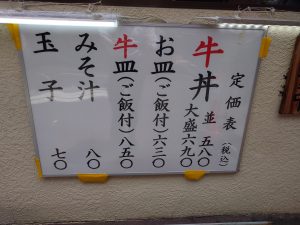 定価表(税込)
牛丼 並 五八〇
大盛 六九〇
お皿(ご飯付)六三〇
牛皿(ご飯付)八五〇
みそ汁 八〇
玉子 七〇